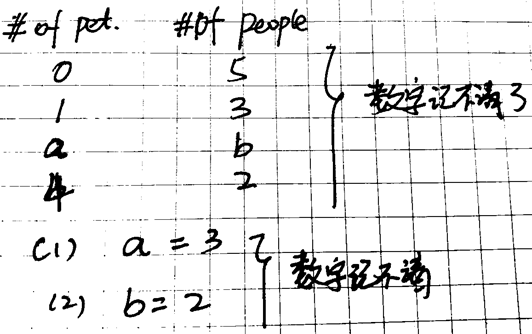 # of pet. # of people
0 5
1 3
a b
4 2
数字记不清了
(1) a = 3
(2) b = 2
数字记不清